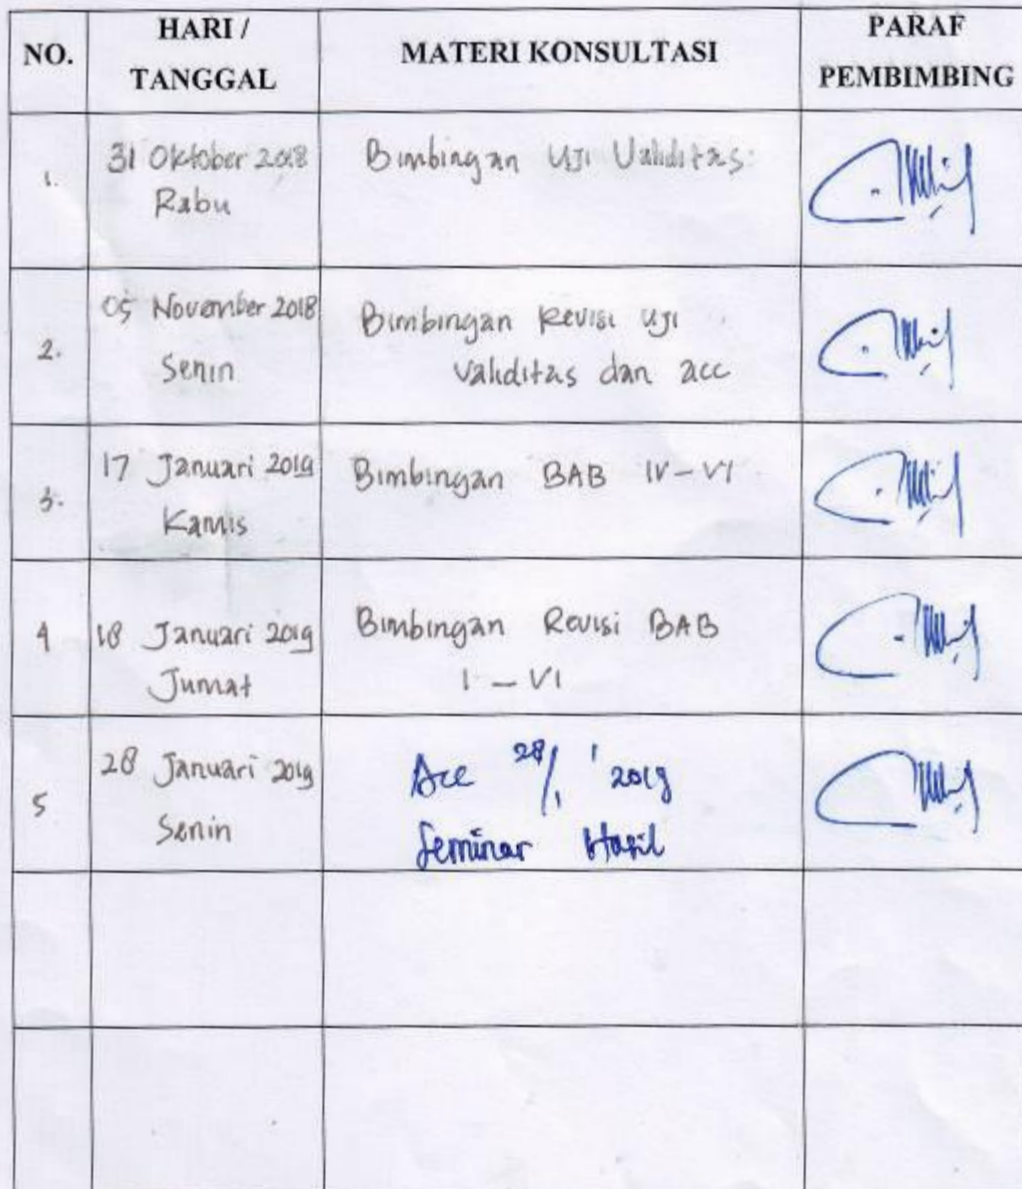 NO.
HARI /
TANGGAL
MATERI KONSULTASI
PARAF
PEMBIMBING
1.
31 Oktober 2018
Rabu
Bimbingan Uji Validitas
2.
05 November 2018
Senin
Bimbingan Revisi Uji
Validitas dan acc
3.
17 Januari 2019
Kamis
Bimbingan BAB IV - VI
4
18 Januari 2019
Jumat
Bimbingan Revisi BAB
I - VI
5
28 Januari 2019
Senin
Acc 28/1 2019
Seminar Hasil